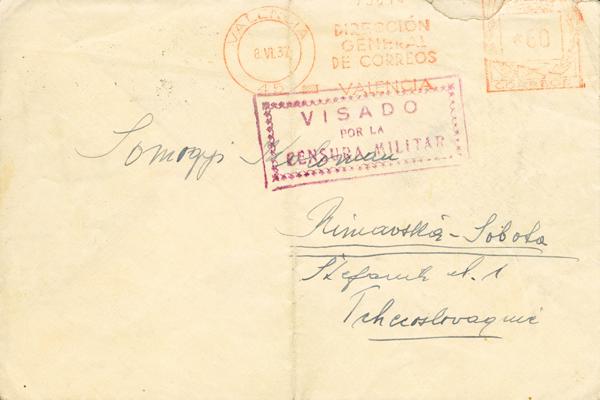 VALENCIA
8.VI.37
DIRECCIÓN
GENERAL
DE CORREOS
VALENCIA
*60
CORREOS
VISADO
POR LA
CENSURA MILITAR
Somogyi Koloman
Rimavská-Sobota
Štefanik u. 1
Tchecoslovaquie